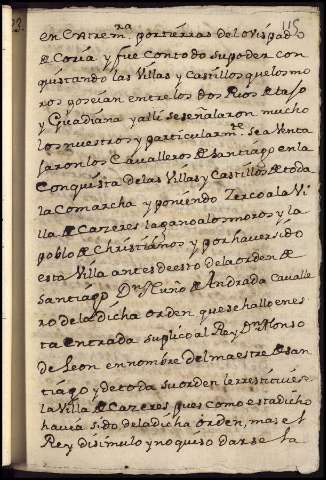 115
en Extrem.ra, por tierras del ovispado
de Coria y fue con todo su poder con
quistando las Villas y Castillos que los mo
ros poseian entre los dos Rios de tajo
y Guadiana y alli se señalaron mucho
los nuestros y particularm.te se aventa
jaron los Cavalleros de Santiago en la
Conquista de las Villas y Castillos de toda
la Comarcha y poniendo Zerco a la Vi
lla de Cazeres la gano a los moros y la
poblo de Christianos y por haver sido
esta Villa antes de esto de la orden de
Santiago Dn Nuño de Andrada Cavalle
ro de la dicha orden que se hallo en es
ta entrada suplico al Rey Dn Alonso
de Leon en nombre del maestre de San
tiago y de toda su orden le restituiese
la Villa de Cazeres pues como esta dicho
havia sido de la dicha orden, mas el
Rey disimulo y no quiso darse la